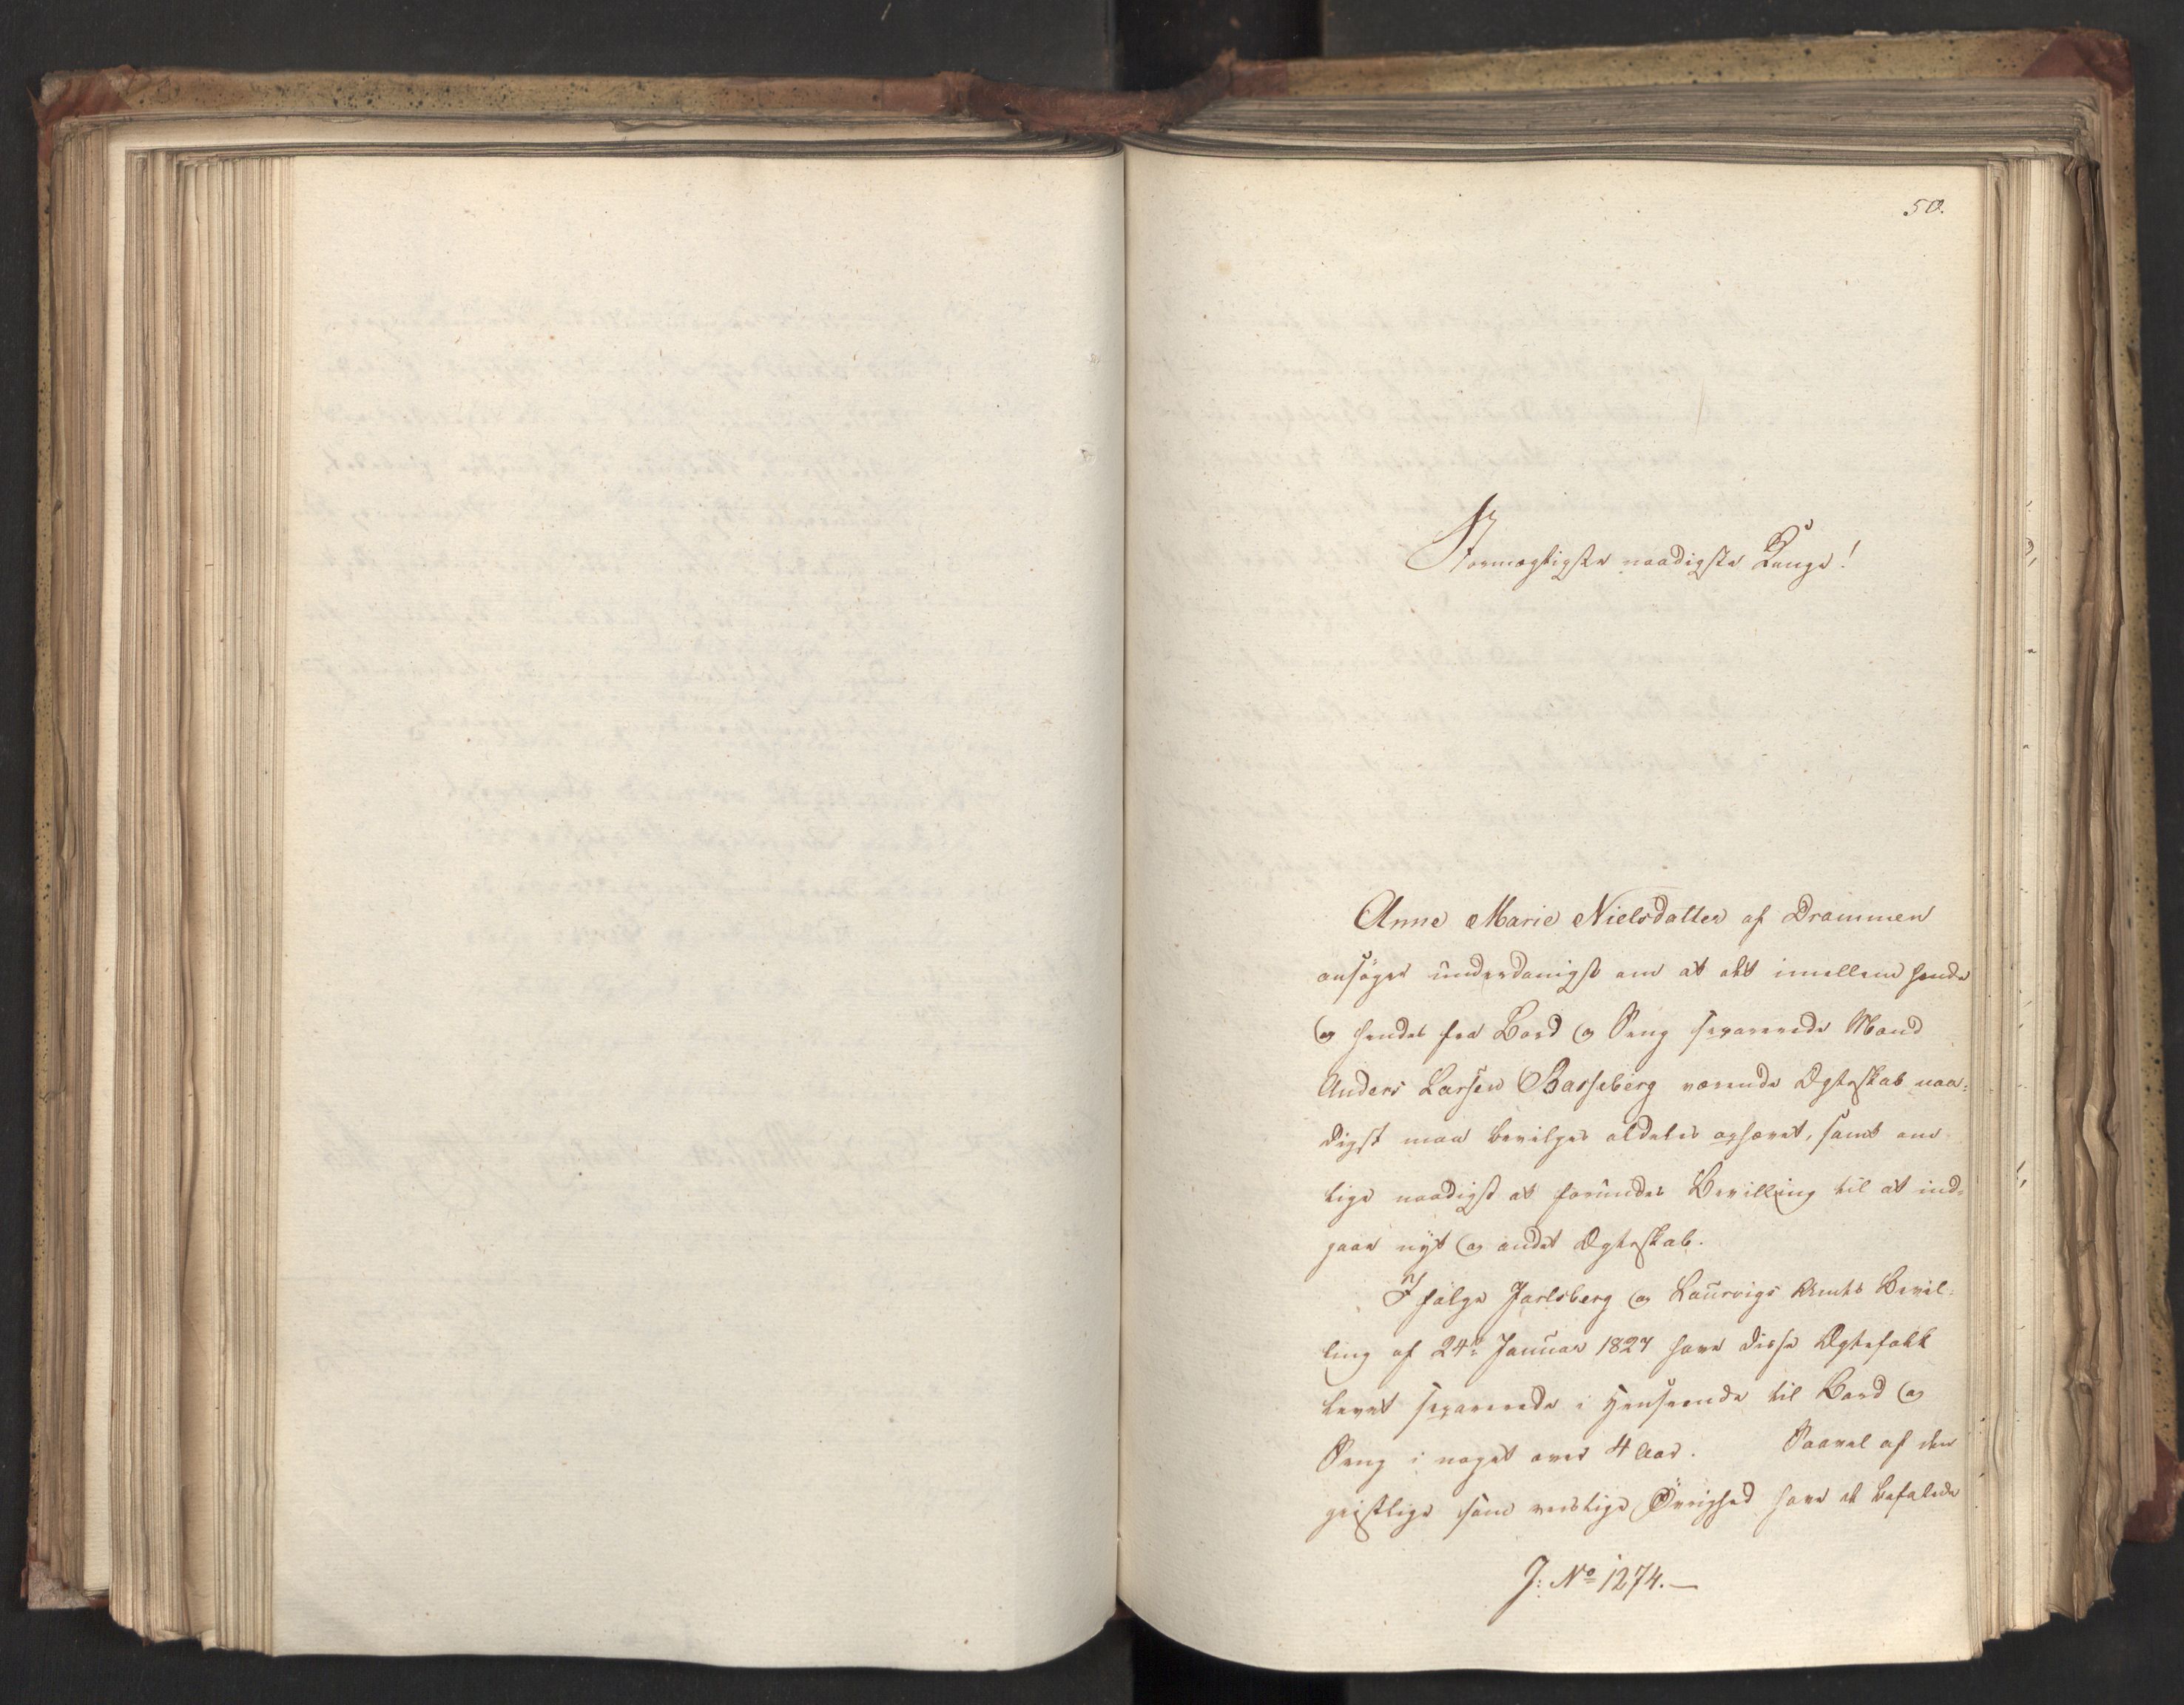 50.
Stormægtigste naadigste Konge!
Anne Marie Nielsdatter af Drammen
ansøger underdanigst om at det imellem hende
og hendes fra Bord og Seng separerede Mand
Anders Larsen Basseberg værende Ægteskab naa-
digst maa bevilges aldeles ophævet, samt om
lige naadigst at forundes Bevilling til at ind-
gaae nyt og andet Ægteskab.
Ifølge Jarlsberg og Laurvigs Amts Bevil-
ling af 24de Januar 1827 have disse Ægtefolk
levet separerede i Henseende til Bord og
Seng i noget over 4 Aar. Saavel af den
geistlige som verdslige Øvrighed have de befalede
J: No 1274.—